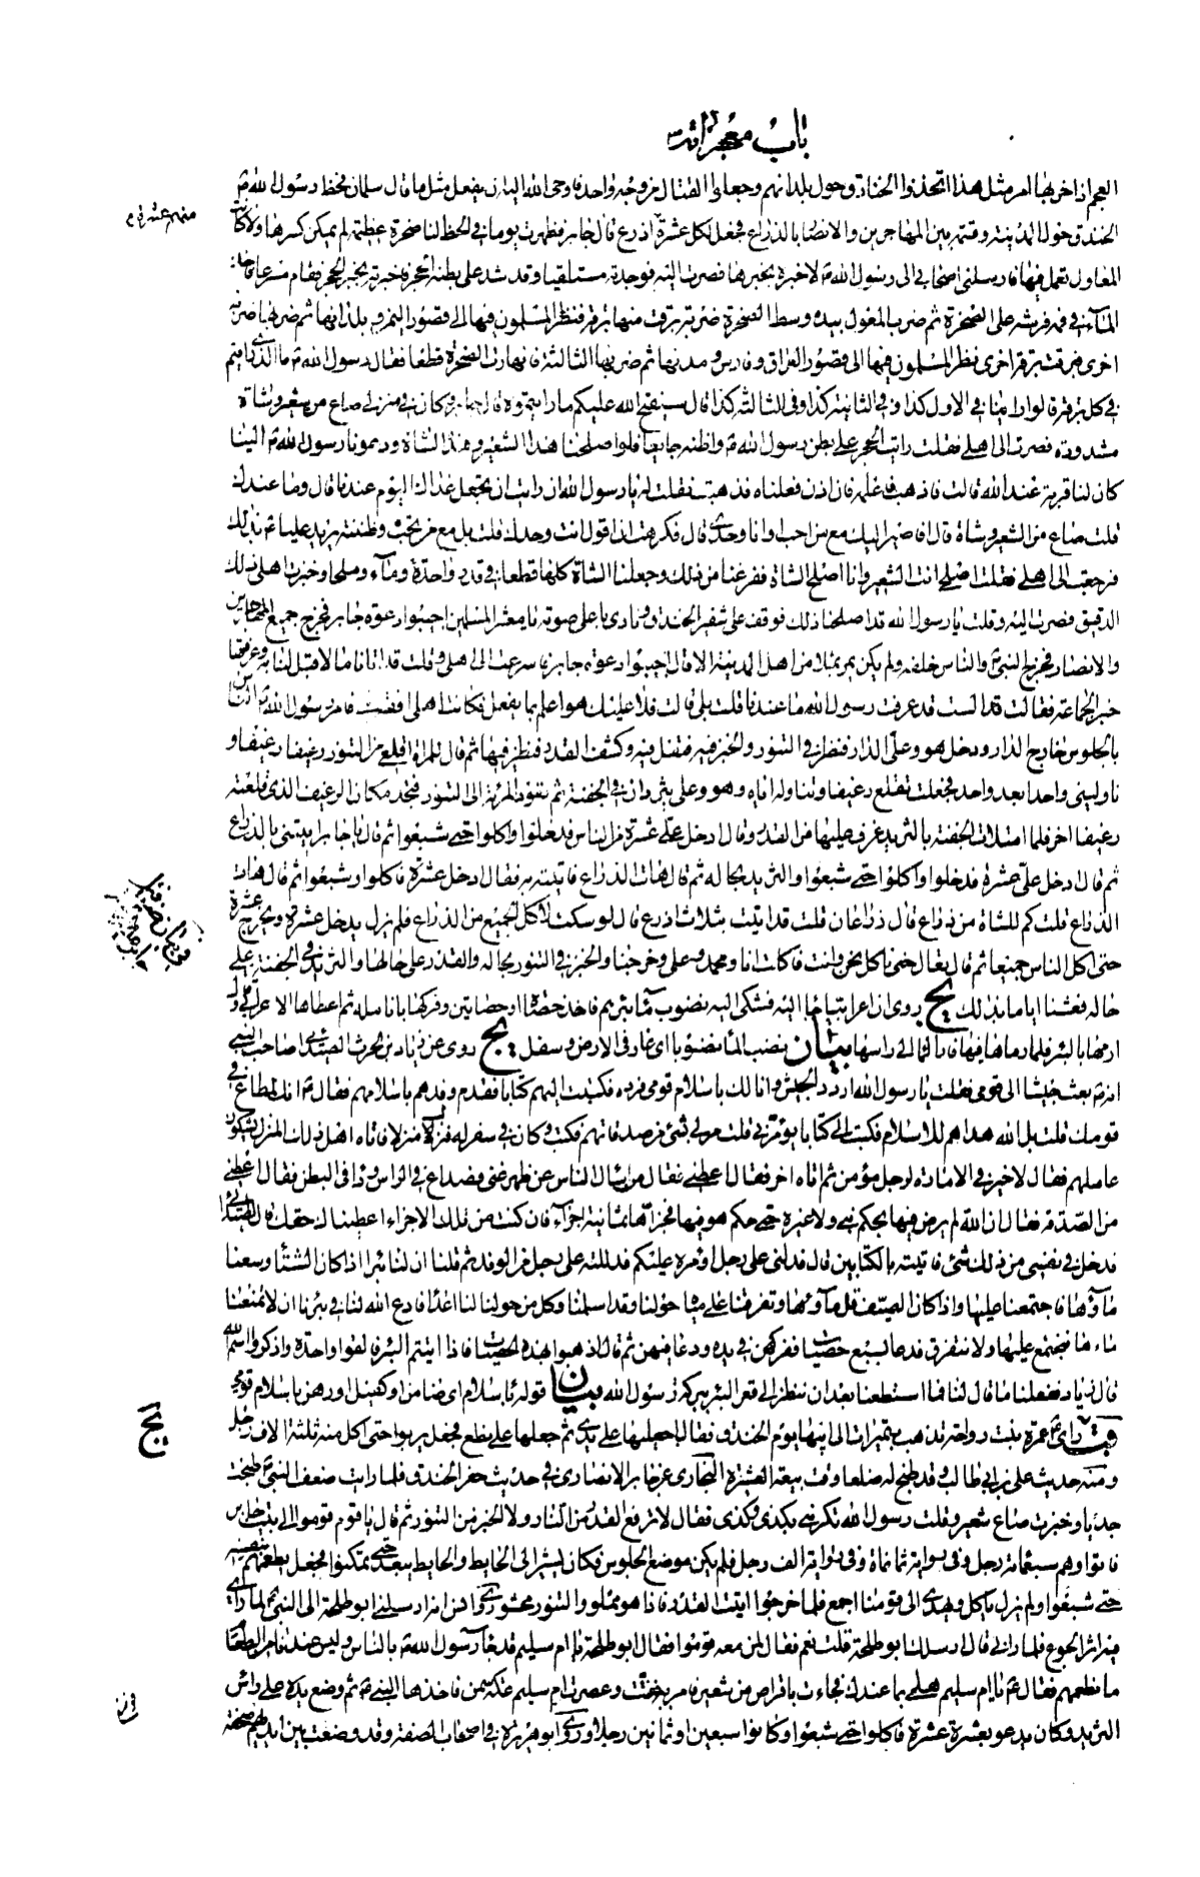 باب معجزاته
العجم اذا حزبها امر مثل هذا اتخذوا الخنادق حول بلدانهم وجعلوا القتال من وجه واحد فاوحى الله اليه ان يفعل مثل ما قال سلمان فخط رسول الله ص
الخندق حول المدينة وقسمه بين المهاجرين والانصار بالذراع فجعل لكل عشرة اذرع قال جابر فظهرت يوما في الخط لنا صخرة عظيمة لم يمكن كسرها ولا كانت
المعاول تعمل فيها فارسلني اصحابي الى رسول الله ص لاخبره بخبرها فصرت اليه فوجدته مستلقيا وقد شد على بطنه الحجر فاخبرته بخبر الحجر فقام مسرعا فاخذ
الماء في فمه فرشه على الصخرة ثم ضرب المعول بيده وسط الصخرة ضربة برقت منها برقة فنظر المسلمون فيها الى قصور اليمن وبلدانها ثم ضربها ضربة
اخرى فبرقت برقة اخرى نظر المسلمون فيها الى قصور العراق وفارس ومدنها ثم ضربها الثالثة فانهارت الصخرة قطعا فقال رسول الله ص ما الذي رايتم
في كل برقة قالوا راينا في الاول كذا وفي الثانية كذا وفي الثالثة كذا قال سيفتح الله عليكم ما رايتموه قال جابر وكان في منزلي صاع من شعير وشاة
مشدودة فصرت الى اهلي فقلت رايت الحجر على بطن رسول الله ص واظنه جائعا فلو اصلحنا هذا الشعير وهذه الشاة ودعونا رسول الله ص الينا
كان لنا قربة عند الله قالت فاذهب فاعلمه فان اذن فعلناه فذهبت فقلت له يا رسول الله ان رايت ان تجعل غداك اليوم عندنا قال وما عندك
قلت صاع من الشعير وشاة قال افاصير اليك مع من احب او انا وحدي قال فكرهت ان اقول انت وحدك قلت بل مع من تحب وظننته يريد عليا ع بذلك
فرجعت الى اهلي فقلت اصلحي انت الشعير وانا اصلح الشاة ففرغنا من ذلك وجعلنا الشاة كلها قطعا في قدر واحدة وماء وملحا وخبزت اهلي ذلك
الدقيق فصرت اليه وقلت يا رسول الله قد اصلحنا ذلك فوقف على شفير الخندق ونادى باعلى صوته يا معشر المسلمين اجيبوا دعوة جابر فخرج جميع المهاجرين
والانصار فخرج النبي ص والناس خلفه ولم يكن يمر بملا من اهل المدينة الا قال اجيبوا دعوة جابر فاسرعت الى اهلي وقلت قد اتانا ما لا قبل لنا به وعرفتها
خبر الجماعة فقالت الست قد عرفت رسول الله ما عندنا قلت بلى قالت فلا عليك هو اعلم بما يفعل فكانت اهلي افقه مني فامر رسول الله ص الناس
بالجلوس خارج الدار ودخل هو وعلي الدار فنظر في التنور والخبز فيه فتفل فيه وكشف القدر فنظر فيها ثم قال للمراة اقلعي من التنور رغيفا رغيفا و
ناوليني واحدا بعد واحد فجعلت تقلع رغيفا وتناوله اياه وهو وعلي يثردان في الجفنة ثم تعود المراة الى التنور فتجد مكان الرغيف الذي قلعته
رغيفا اخر فلما امتلات الجفنة بالثريد غرف عليها من القدر وقال ادخل علي عشرة من الناس فدخلوا واكلوا حتى شبعوا ثم قال يا جابر ايتني بالذراع
ثم قال ادخل علي عشرة فدخلوا واكلوا حتى شبعوا والثريد بحاله ثم قال هات الذراع فاتيته به فقال ادخل عشرة فاكلوا وشبعوا ثم قال هات
الذراع قلت كم للشاة من ذراع قال ذراعان قلت قد اتيت بثلاث اذرع قال لو سكت لاكل الجميع من الذراع فلم يزل يدخل عشرة ويخرج عشرة
حتى اكل الناس جميعا ثم قال تعال حتى ناكل نحن وانت فاكلت انا ومحمد ص وعلي وخرجنا والخبز في التنور بحاله والقدر على حالها والثريد في الجفنة على
حاله فعشنا اياما بذلك يج روي ان اعرابيا جاء اليه فشكى اليه نضوب ماء بئرهم فاخذ حصاة او حصاتين وفركها بانامله ثم اعطاها الاعرابي وقال
ارمها بالبئر فلما رماها فيها فار الماء الى راسها بيان نضب الماء نضوبا اي غار في الارض وسفل يج روى عن زياد بن الحرث الصيدائي صاحب النبي
انه ص بعث جيشا الى قومي فقلت يا رسول الله اردد الجيش وانا لك باسلام قومي فرده فكتبت اليهم كتابا فقدم وفدهم باسلامهم فقال ص انك لمطاع في
قومك قلت بل الله هداهم للاسلام فكتب الي كتابا يؤمرني قلت مر لي بشئ من صدقاتهم فكتب وكان في سفر له فنزل منزلا فاتاه اهل ذلك المنزل يشكون
عاملهم فقال لا خير في الامارة لرجل مؤمن ثم اتاه اخر فقال اعطني فقال من سال الناس عن ظهر غنى فصداع في الراس وداء في البطن فقال اعطني
من الصدقة فقال ان الله لم يرض فيها بحكم نبي ولا غيره حتى حكم هو فيها فجزاها ثمانية اجزاء فان كنت من تلك الاجزاء اعطيناك حقك قال الصيدائي
فدخل في نفسي من ذلك شئ فاتيته بالكتابين قال فدلني على رجل اؤمره عليكم فدللته على رجل من الوفد ثم قلنا ان لنا بئرا اذا كان الشتاء وسعنا
ماؤها فاجتمعنا عليها واذا كان الصيف قل ماؤها وتفرقنا على مياه حولنا وقد اسلمنا وكل من حولنا لنا اعداء فادع الله لنا في بئرنا ان لا تمنعنا
ماءها فنجتمع عليها ولا نتفرق فدعا بسبع حصيات ففركهن في يده ودعا فيهن ثم قال اذهبوا بهذه الحصيات فاذا اتيتم البئر فالقوا واحدة واذكروا اسم الله
قال زياد ففعلنا ما قال لنا فما استطعنا بعد ان ننظر الى قعر البئر ببركة رسول الله بيان قوله باسلام اي ضامن او كفيل او رهن باسلام قومي
قب راى ص عمرة بنت رواحة تذهب بتميرات الى ابيها يوم الخندق فقال اجعليها على يدي ثم جعلها على نطع فجعل يربو حتى اكل منه ثلثة الاف رجل
ومنه حديث علي بن ابي طالب وقد طبخ له ضلعا وقت بيعة العشيرة البخاري عن جابر الانصاري في حديث حفر الخندق فلما رايت ضعف النبي ص طبخت
جديا وخبزت صاع شعير وقلت رسول الله تكرمني بكذى وكذى فقال لا ترفع القدر من النار ولا الخبز من التنور ثم قال يا قوم قوموا الى بيت جابر
فاتوا وهم سبعمائة رجل وفي رواية ثمانمائة وفي رواية الف رجل فلم يكن موضع الجلوس فكان يشير الى الحايط والحايط يبعد حتى تمكنوا فجعل يطعمهم بنفسه
حتى شبعوا ولم يزل ياكل ويهدي الى قومنا اجمع فلما خرجوا اتيت القدر فاذا هو مملو والتنور محشو وروي انس ارسلني ابو طلحة الى النبي ص لما راى
فيه اثر الجوع فلما راني قال ارسلك ابو طلحة قلت نعم فقال لمن معه قوموا فقال ابو طلحة يا ام سليم قد جاء رسول الله ص بالناس وليس عندنا من الطعام
ما نطعمهم فقال ص يا ام سليم هلمي بما عندك فجاءت باقراص من شعير فامر به ففتت وعصرت ام سليم عكة سمن فاخذها النبي ص ثم وضع يده على راس
الثريد وكان يدعو بعشرة عشرة فاكلوا حتى شبعوا وكانوا سبعين او ثمانين رجلا وروي ابو هريرة في اصحاب الصفة وقد وضعت بين ايديهم صحفة
يج